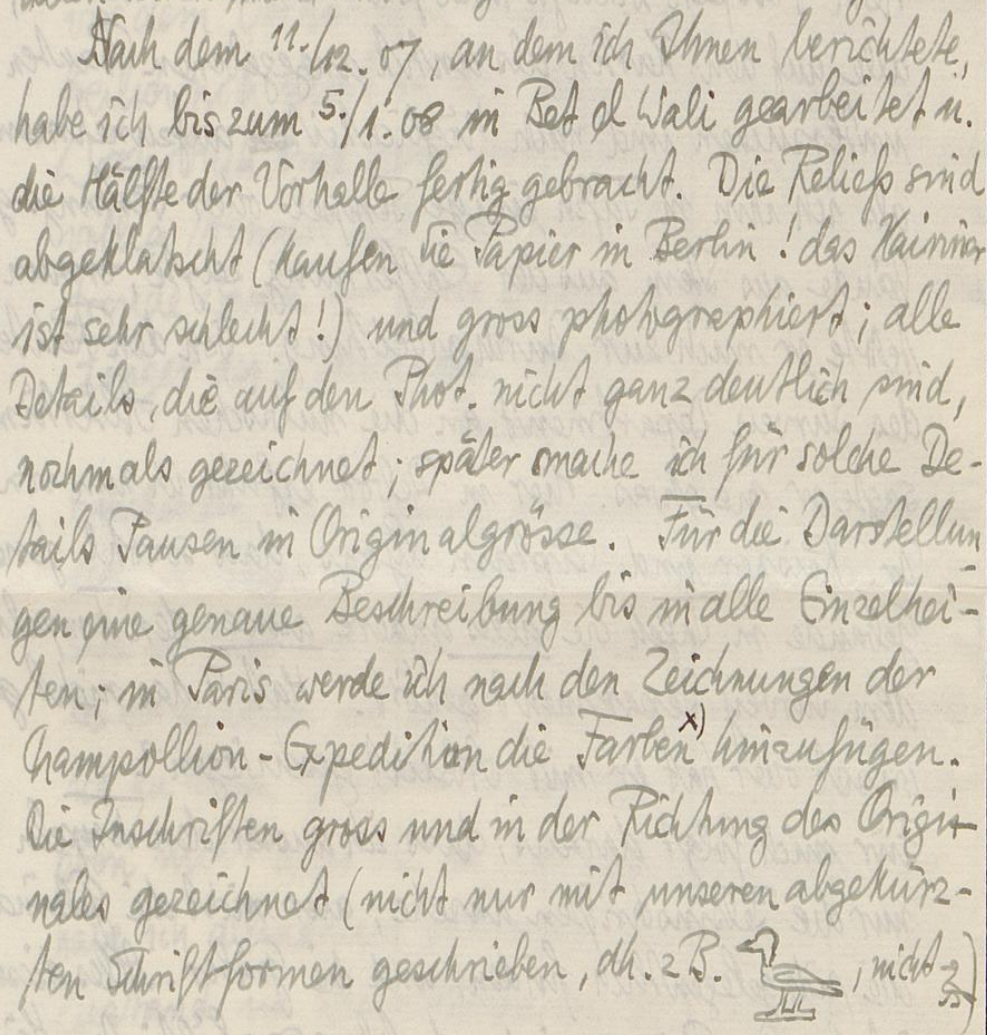 Nach dem 11./12. 07, an dem ich Ihnen berichtete,
habe ich bis zum 5./1. 08 in Bet el Wali gearbeitet u.
die Hälfte der Vorhalle fertig gebracht. Die Reliefs sind
abgeklatscht (kaufen Sie Papier in Berlin! das Kairiner
ist sehr schlecht!) und gross photographiert; alle
Details, die auf den Phot. nicht ganz deutlich sind,
nochmals gezeichnet; später mache ich für solche De-
tails Pausen in Originalgrösse. Für die Darstellun-
gen eine genaue Beschreibung bis in alle Einzelhei-
ten; in Paris werde ich nach den Zeichnungen der
Champollion-Expedition die Farben x) hinzufügen.
Die Inschriften gross und in der Richtung des Origi-
nales gezeichnet (nicht nur mit unseren abgekürz-
ten Schriftformen geschrieben, dh. z B. , nicht )